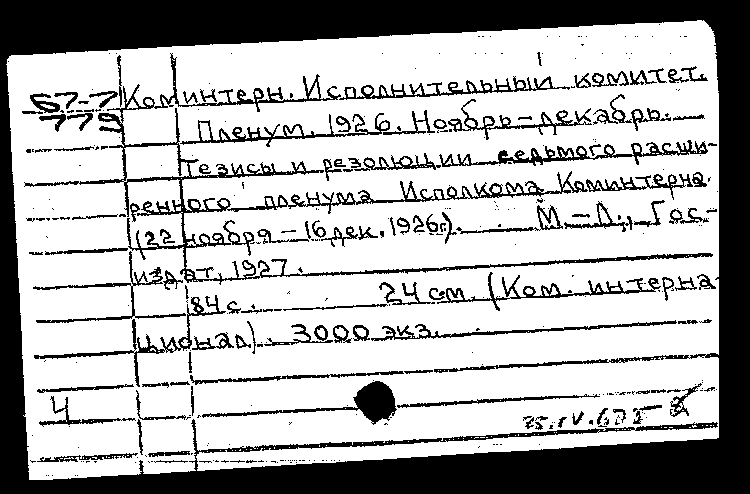 67-7 Коминтерн. Исполнительный комитет.
779 Пленум. 1926. Ноябрь-декабрь.
Тезисы и резолюции седьмого расши-
ренного пленума Исполкома Коминтерна.
(22 ноября - 16 дек. 1926г.). М.-Л., Гос-
издат, 1927.
84с. 24 см. (Ком. интерна-
ционал). 3000 экз.
4